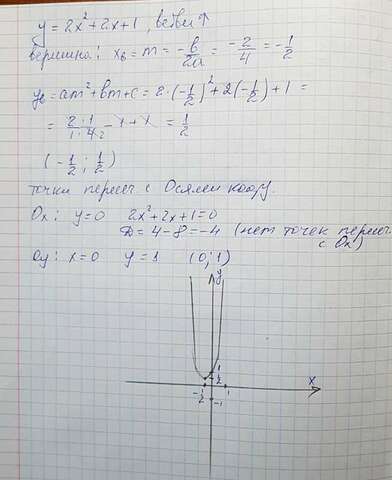 y = 2x² + 2x + 1, ветви ↑
вершина: x₆ = m = -b/2a = -2/4 = -1/2
y₆ = am² + bm + c = 2·(-1/2)² + 2(-1/2) + 1 =
= 2·1/1·4₂ - 1 + 1 = 1/2
(-1/2; 1/2)
точки пересеч с Осями коор.
Ox: y=0 2x²+2x+1=0
D = 4-8 = -4 (нет точек пересеч
с Ox)
Oy: x=0 y=1 (0; 1)
y
1
1/2
x
-1/2
1
-1